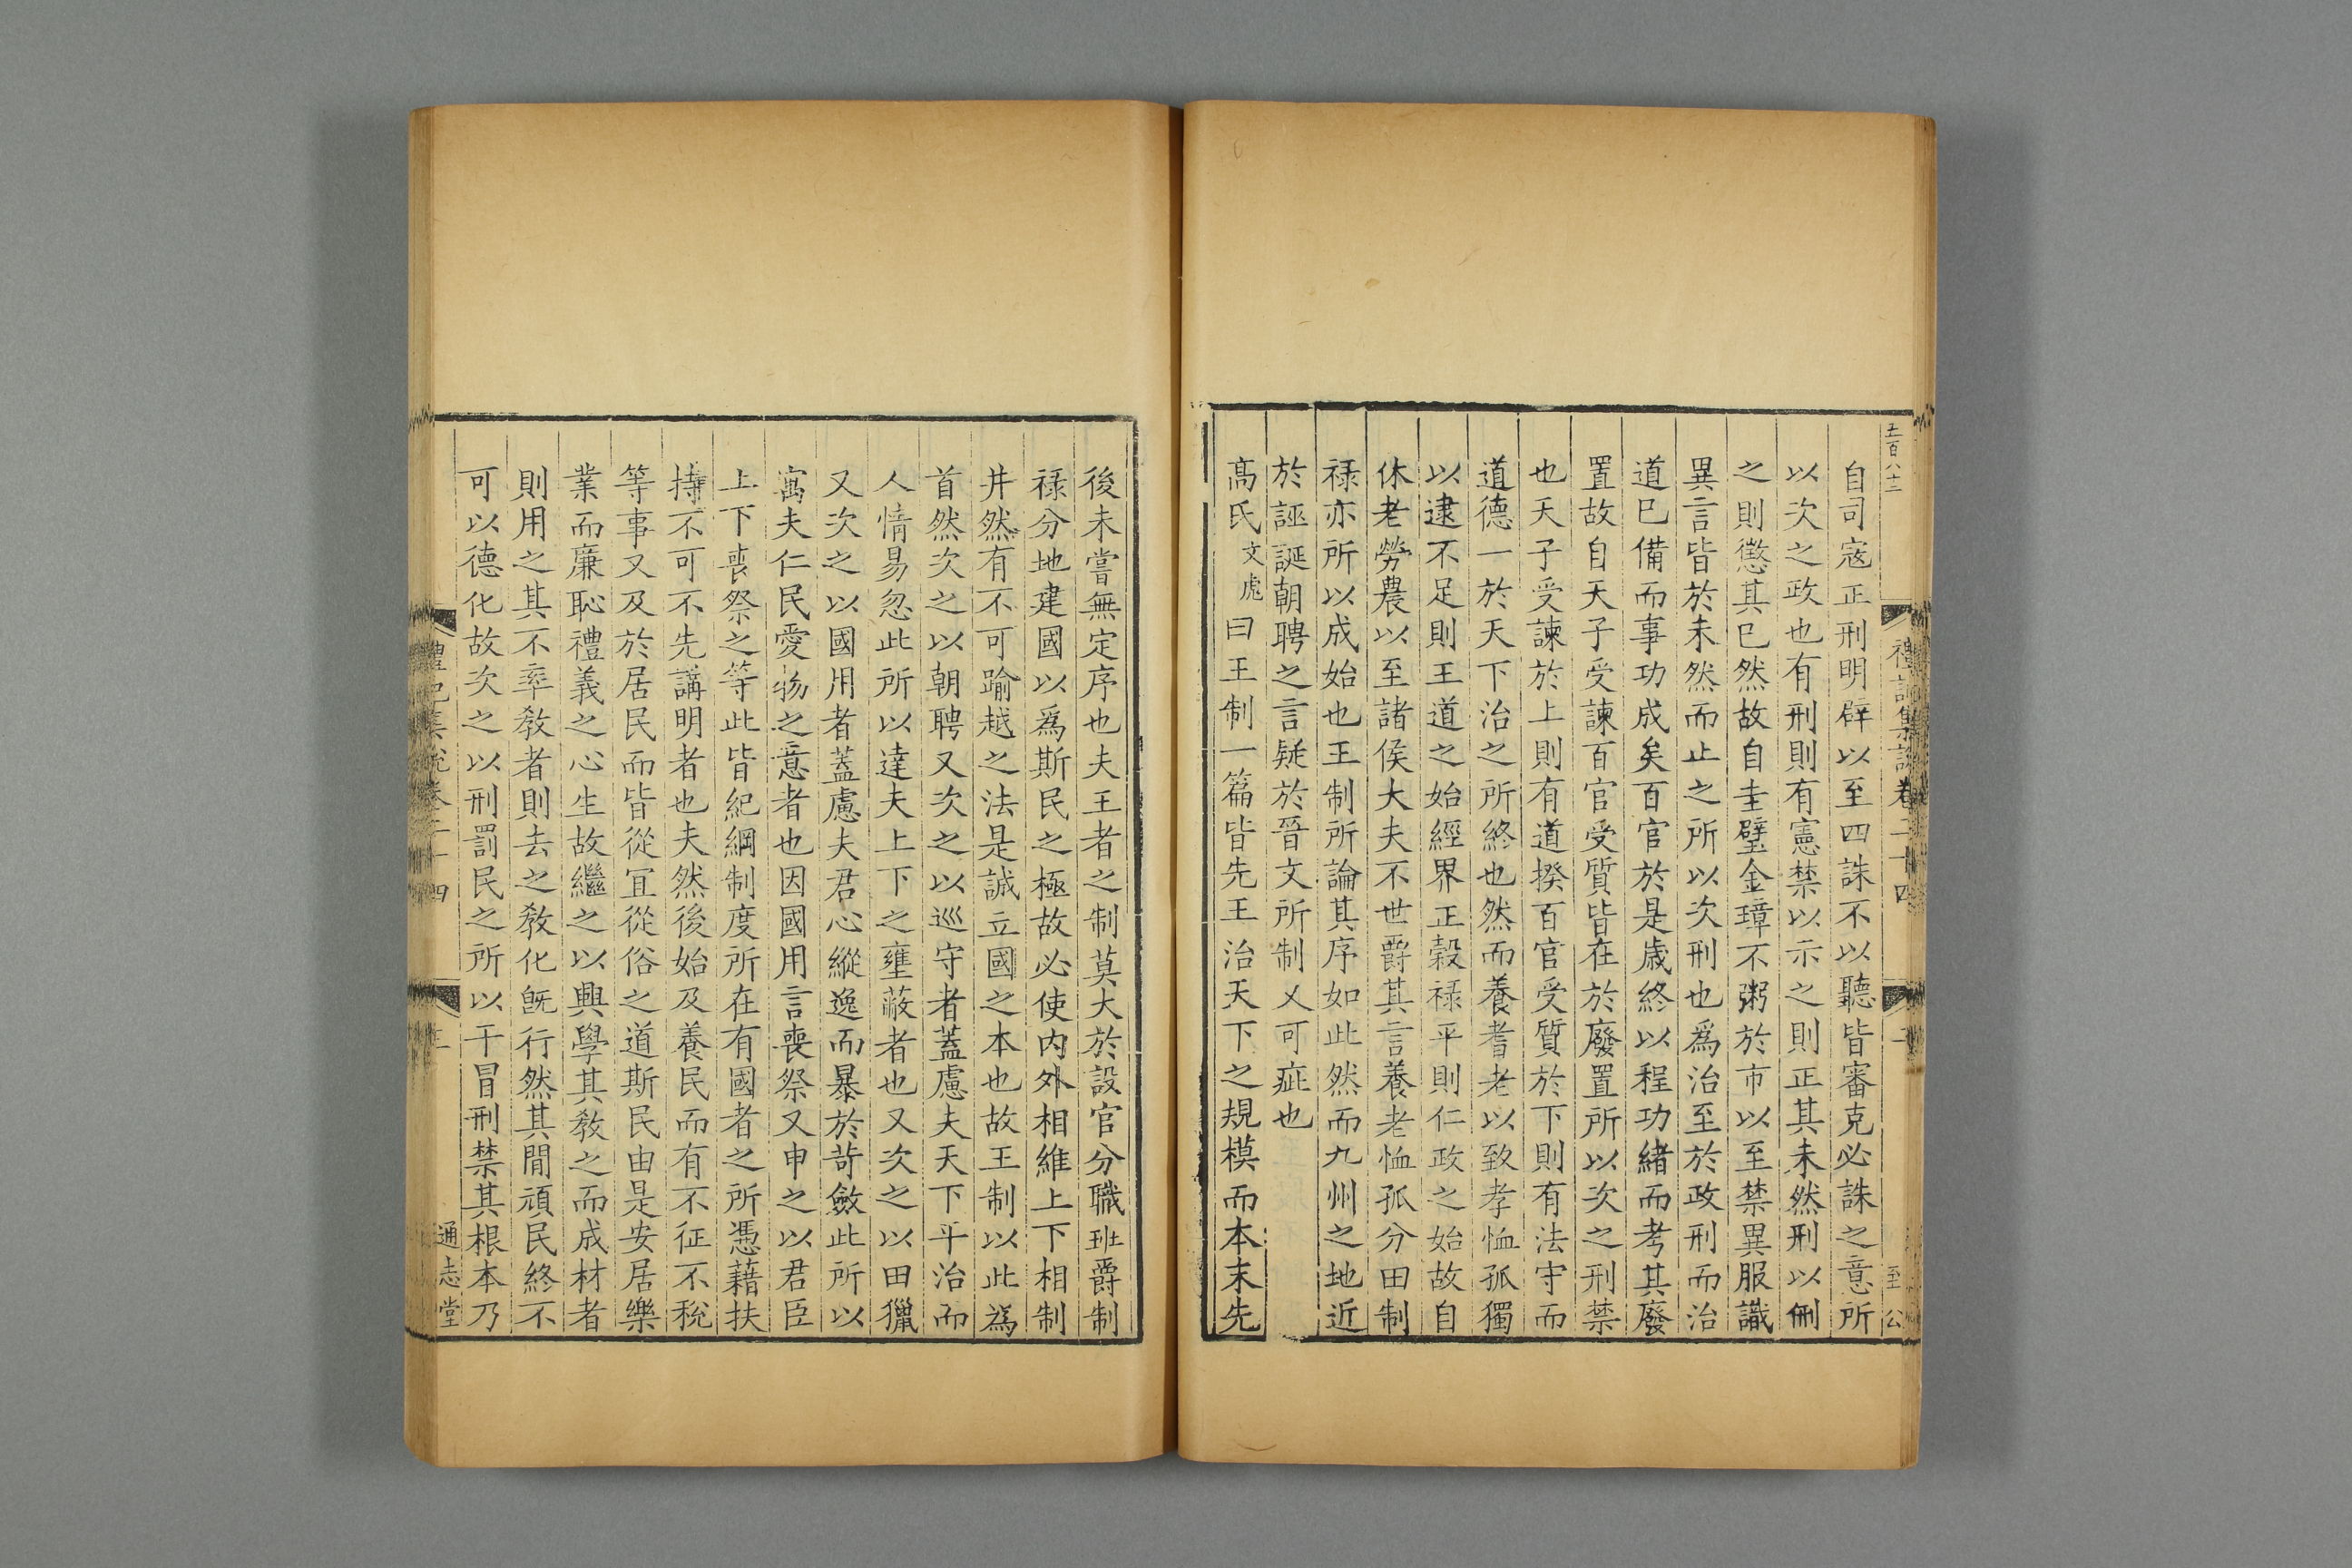 五百八十二
禮記集說卷二十四
二
至公
自司寇正刑明辟以至四誅不以聽皆審克必誅之意所
以次之政也有刑則有憲禁以示之則正其未然刑以刪
之則懲其已然故自圭璧金璋不粥於市以至禁異服識
異言皆於未然而止之所以次刑也爲治至於政刑而治
道已備而事功成矣百官於是歲終以程功緒而考其廢
置故自天子受諫百官受質皆在於廢置所以次之刑禁
也天子受諫於上則有道揆百官受質於下則有法守而
道德一於天下治之所終也然而養耆老以致孝恤孤獨
以逮不足則王道之始經界正穀禄平則仁政之始故自
休老勞農以至諸侯大夫不世爵其言養老恤孤分田制
禄亦所以成始也王制所論其序如此然而九州之地近
於誣誕朝聘之言疑於晉文所制又可疵也
高氏文虎曰王制一篇皆先王治天下之規模而本末先
後未嘗無定序也夫王者之制莫大於設官分職班爵制
禄分地建國以爲斯民之極故必使内外相維上下相制
井然有不可踰越之法是誠立國之本也故王制以此為
首然次之以朝聘又次之以巡守者蓋慮夫天下平治而
人情易忽此所以達夫上下之壅蔽者也又次之以田獵
又次之以國用者蓋慮夫君心縱逸而暴於苛斂此所以
寓夫仁民愛物之意者也因國用言喪祭又申之以君臣
上下喪祭之等此皆紀綱制度所在有國者之所憑藉扶
持不可不先講明者也夫然後始及養民而有不征不稅
等事又及於居民而皆從宜從俗之道斯民由是安居樂
業而廉恥禮義之心生故繼之以興學其教之而成材者
則用之其不率教者則去之教化既行然其間頑民終不
可以德化故次之以刑罰民之所以干冒刑禁其根本乃
禮記集說卷二十四
三
通志堂